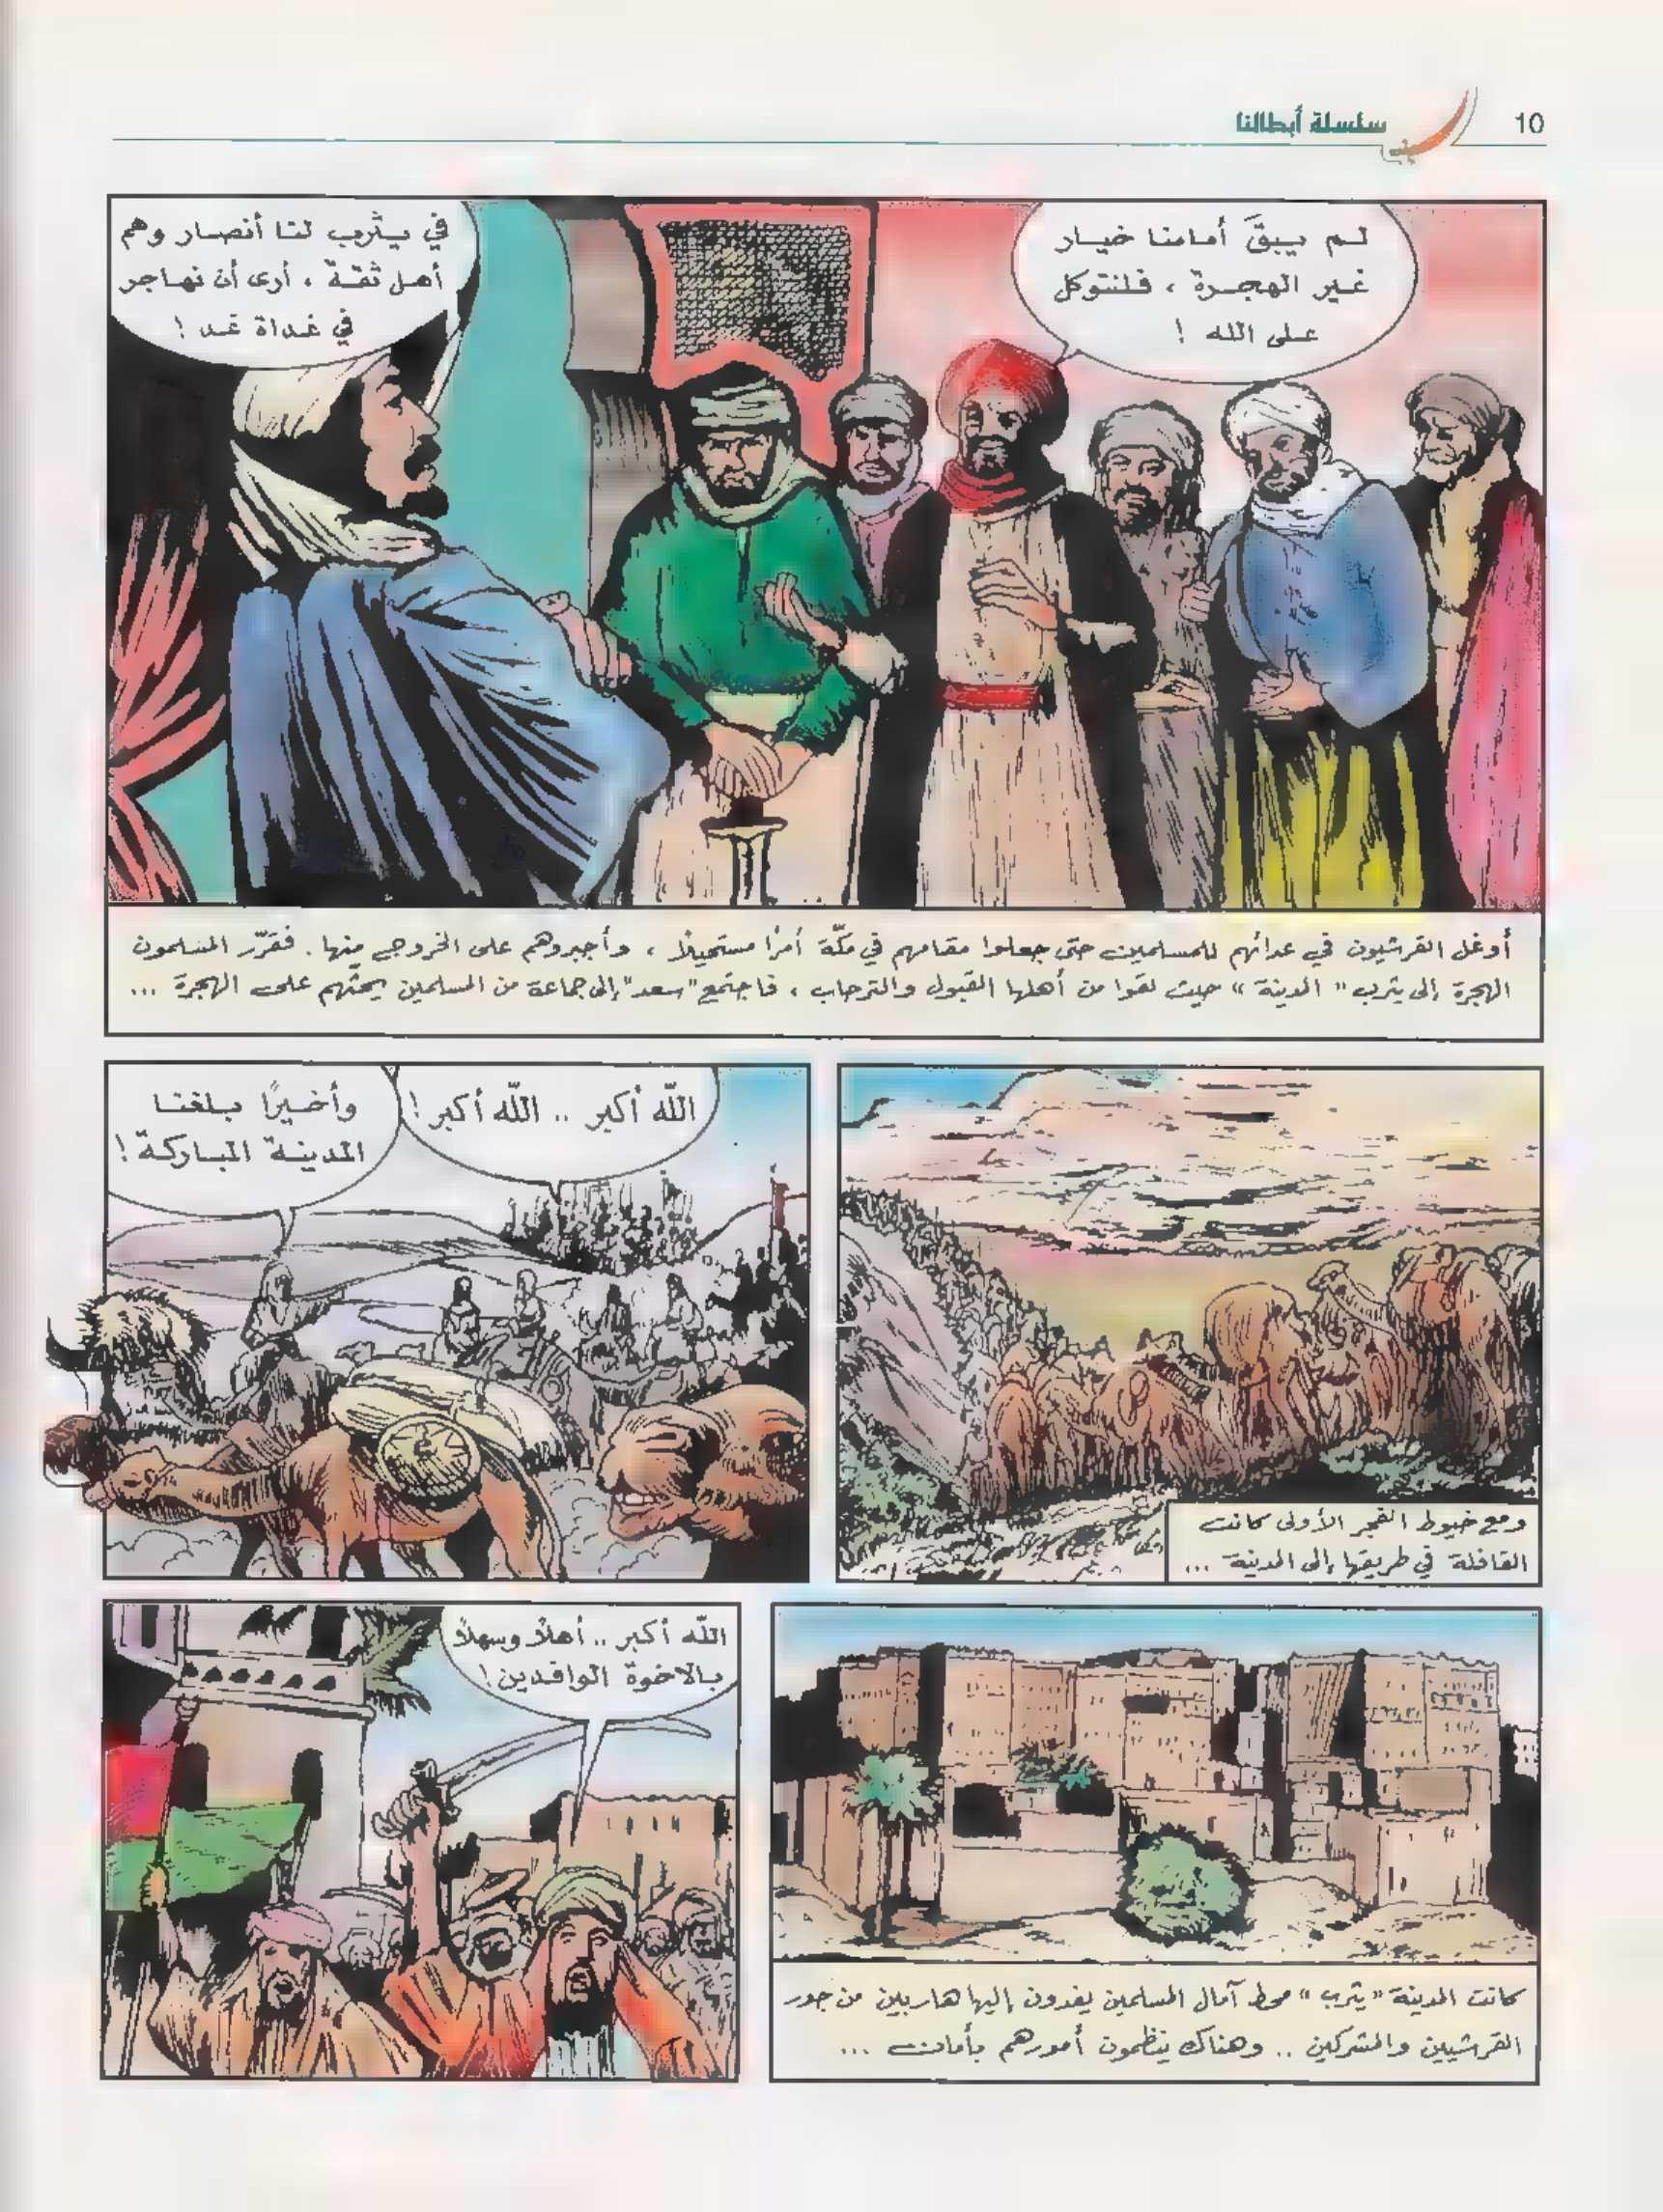 10
سلسلة أبطالنا
لم يبقَ أمامنا خيار
غير الهجرة ، فلنتوكل
على الله !
في يثرب لنا أنصار وهم
أهل ثقة ، أرى أن نهاجر
في غداة غد !
أوغل القرشيون في عدائهم للمسلمين حتى جعلوا مقامهم في مكّة أمرًا مستحيلًا ، وأجبروهم على الخروج منها . فقرّر المسلمون
الهجرة إلى يثرب " المدينة " حيث لقوا من أهلها القبول والترحاب ، فاجتمع "سعد" إلى جماعة من المسلمين يحثّهم على الهجرة ...
ومع خيوط الفجر الأولى كانت
القافلة في طريقها إلى المدينة ...
اللّه أكبر .. اللّه أكبر !
وأخيرًا بلغنا
المدينة المباركة !
كانت المدينة " يثرب " محط آمال المسلمين يفدون إليها هاربين من جور
القرشيين والمشركين .. وهناك ينظمون أمورهم بأمان ...
اللّه أكبر .. أهلاً وسهلاً
بالاخوة الوافدين !